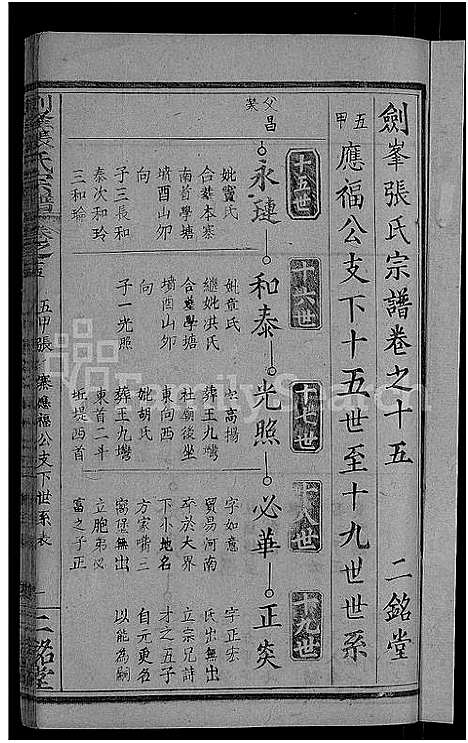 劍峯張氏宗譜卷之十五　二銘堂
五甲應福公支下十五世至十九世世系
十五世
十六世
十七世
十八世
十九世
父昌
永璉
和泰
光照
必華
正炎
妣竇氏
合塟本寨
南首學塘
墳酉山卯
向
子三長和
泰次和玲
三和瑜
妣童氏
繼妣洪氏
合塟學塘
墳酉山卯
向
子一光照
字高揚
葬王九塆
杜廟後坐
東向西
妣胡氏
葬王九塆
東首二斗
坵堤西首
字如意
貿易河南
卒於大界
下小地名
方家嘴三
窩堡無出
立胞弟必
富之子正
字正宏
氏出無
立宗兄詩
才之五子
自元更名
以能為嗣
五甲張
寨應福公支下世系表
二銘堂
FamilySearch